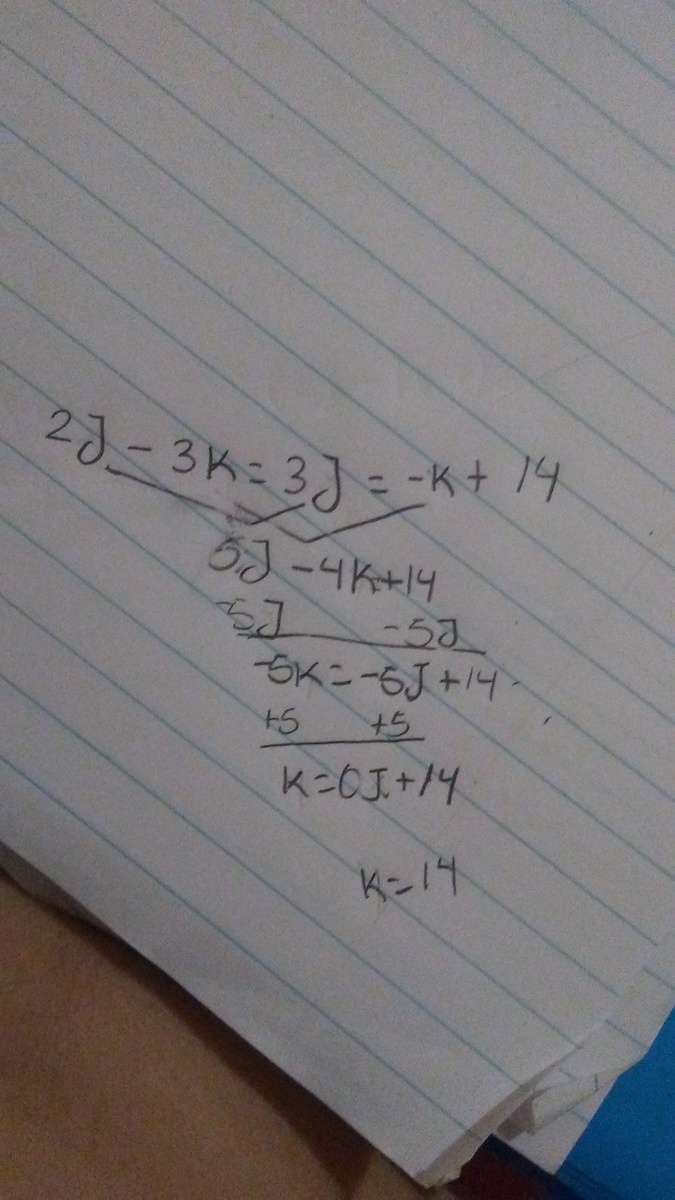 2J - 3K = 3J = -K + 14
5J - 4K + 14
-5J -5J
-5K = -5J + 14
+5 +5
K = 0J + 14
K = 14